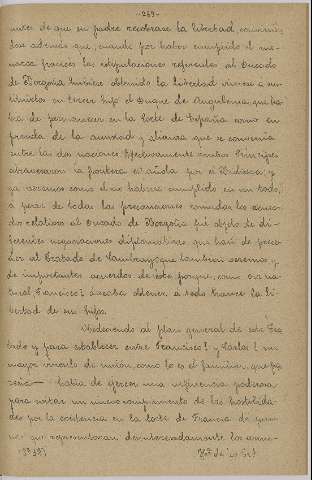 -269-
antes de que su padre recobrase la libertad, convinién-
dose además que, cuando por haber cumplido el mo-
narca francés las estipulaciones referentes al Ducado
de Borgoña hubiere obtenido la libertad viniese a sus-
tituirlos su tercer hijo el Duque de Angulema que ha-
bía de permanecer en la Corte de España como en
prenda de la amistad y alianza que se convenía
entre las dos naciones. Efectivamente ambos Príncipes
atravesaron la frontera española por el Bidasoa, y
ya veremos como el no haberse cumplido en un todo,
a pesar de todas las precauciones tomadas los acuer-
dos relativos al Ducado de Borgoña fué objeto de di-
ferentes negociaciones diplomáticas que han de prece-
der al Tratado de Cambray, que también veremos y
de importantes acuerdos de este porque, como era na-
tural, Francisco I deseaba obtener a todo trance la li-
bertad de sus hijos.
Obedeciendo al plan general de este Tra-
tado y para establecer entre Francisco I y Carlos I un
mayor vínculo de unión, como lo es el familiar, que
había de ejercer una influencia poderosa
para evitar un nuevo rompimiento de las hostilida-
des por la existencia en la Corte de Francia de
que representaran desinteresadamente los